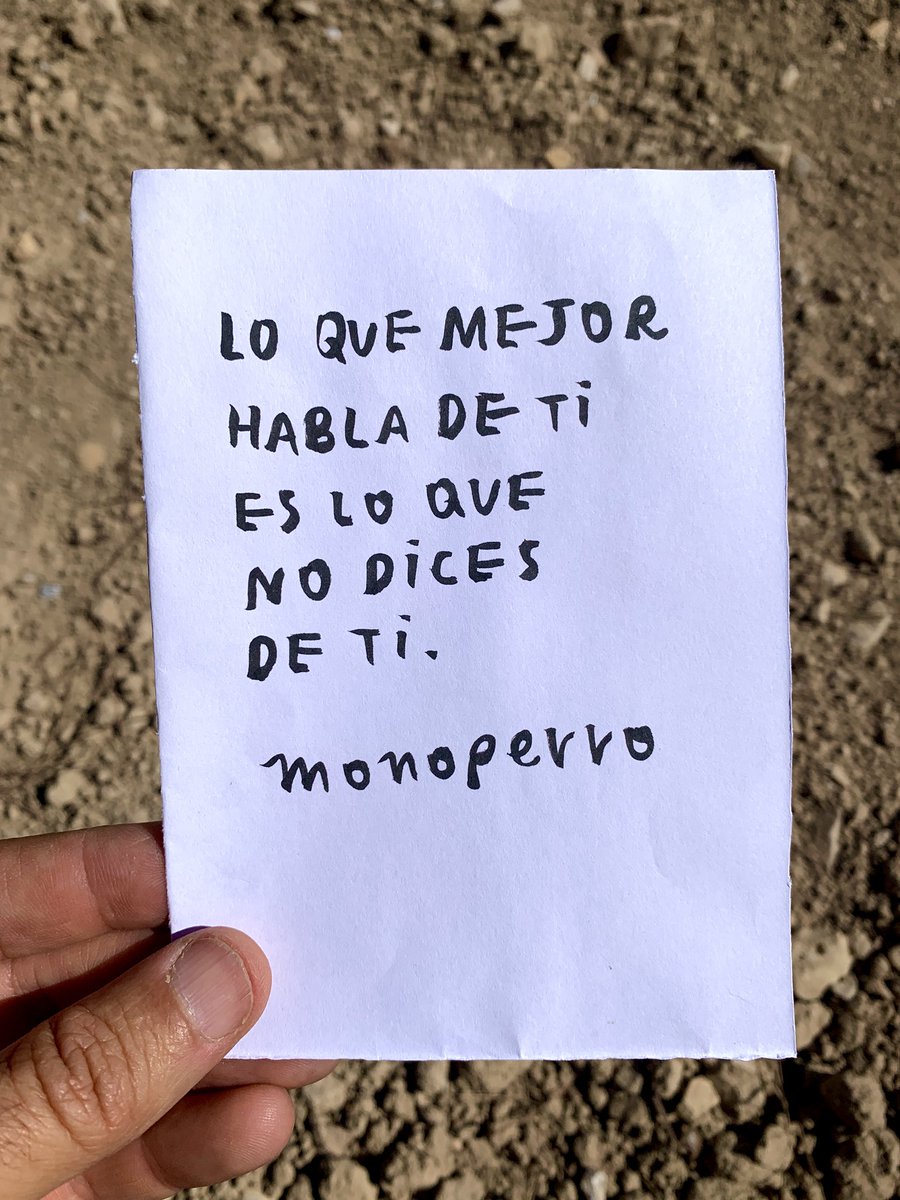 LO QUE MEJOR
HABLA DE Ti
ES LO QUE
NO DiCES
DE Ti.
monoperro